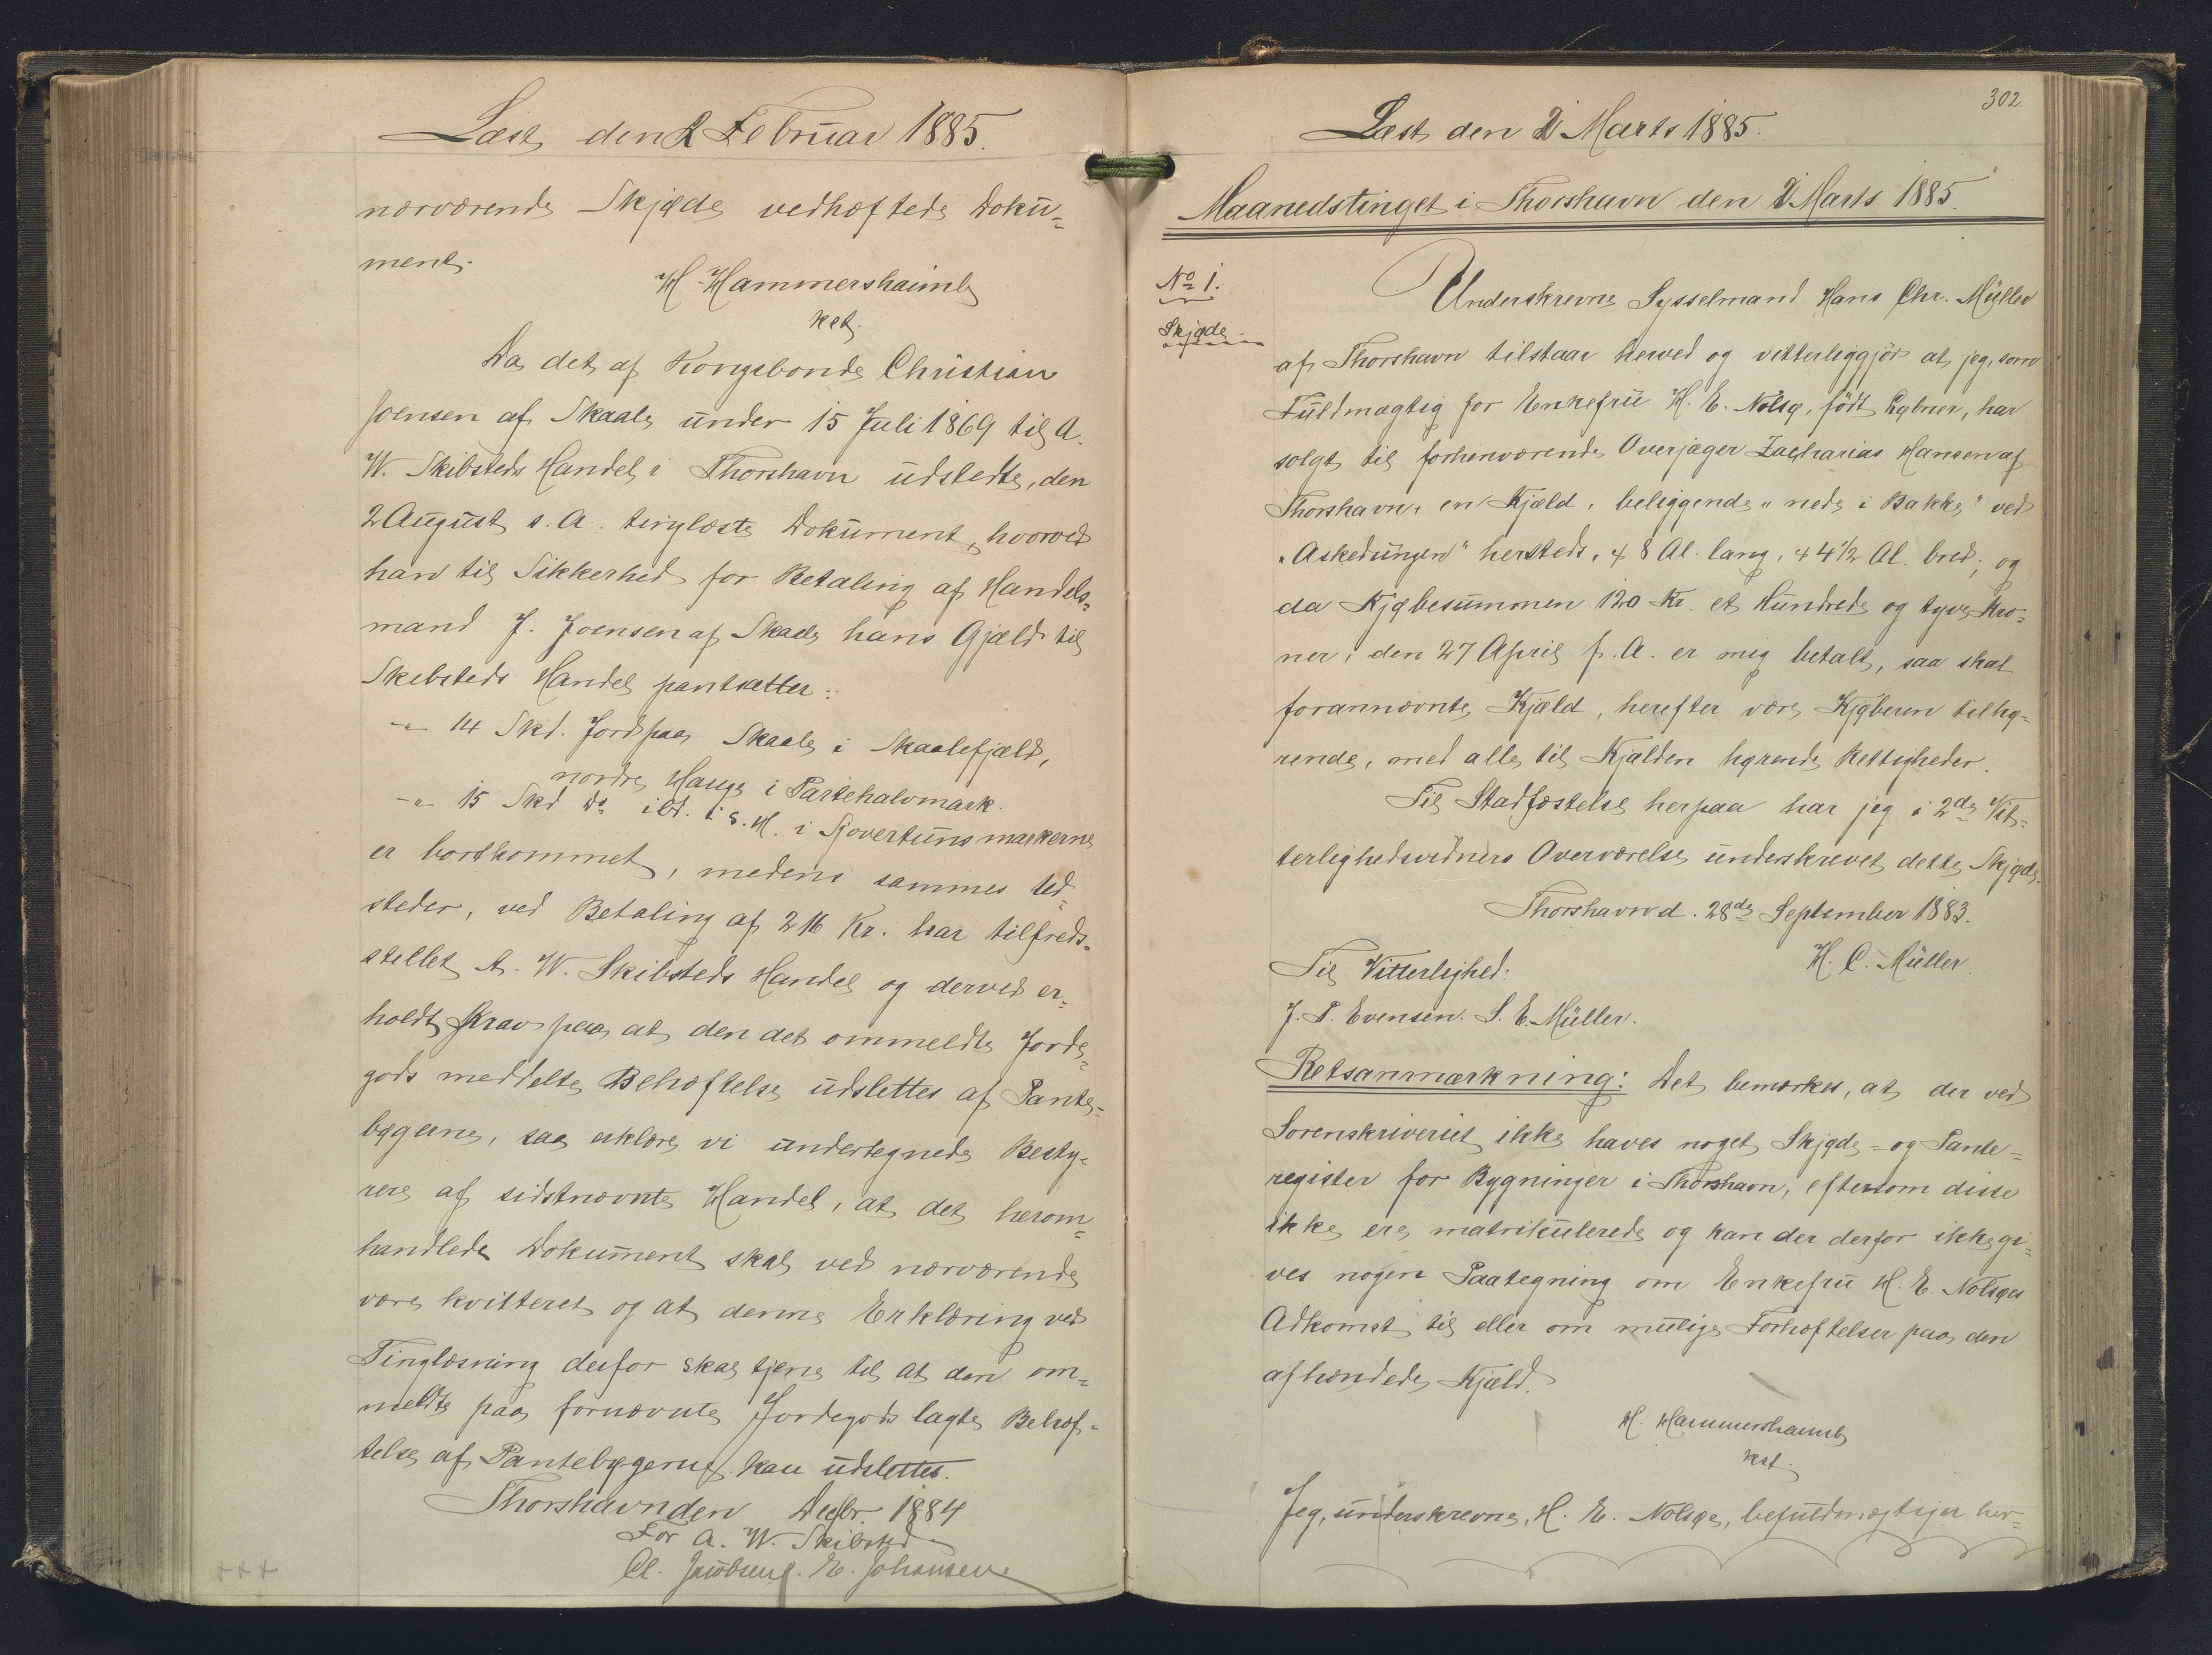 Læst den 2 Februar 1885.
nærværende Skjøde vedhæftede Doku-
ment.
H. Hammershaimb
kst.
Da det af Kongsbonde Christian
Joensen af Skaale under 15 Juli 1869 til A.
W. Skibsteds Handel i Thorshavn udstedte, den
2 August s. A. tinglæste Dokument, hvorved
han til Sikkerhed for Betaling af Handels-
mand J. Joensen af Skaale hans Gjæld til
Skibsteds Handel pantsætter:
-"- 14 Skd. Jord paa Skaale i Skaalefjæld,
nordre Hauge i Partehalvmark.
-"- 15 Skd do ibd. i s. H. i Sjovertunsmarkerne
er bortkommet, medens sammes Ud-
steder, ved Betaling af 216 Kr. har tilfreds-
stillet A. W. Skibsteds Handel og derved er-
holdt Krav paa at den det ommeldte Jorde-
gods meddelte Behæftelse udslettes af Pante-
bøgerne, saa erklære vi undertegnede Besty-
rere af sidstnævnte Handel, at det herom-
handlede Dokument skal ved nærværende
være kvitteret og at denne Erklæring ved
Tinglæsning derfor skal tjene til at den om-
meldte paa fornævnte Jordegods lagte Behæf-
telse af Pantebøgerne kan udslettes.
Thorshavn den Decbr. 1884
For A. W. Skibsted
Cl. Jacobsen. E. Johansen.
+++
302.
Læst den 2 Marts 1885.
Maanedstinget i Thorshavn den 2 Marts 1885.
No 1.
Skjøde
Underskrevne Sysselmand Hans Chr. Müller
af Thorshavn tilstaar herved og vitterliggjør at jeg, som
Fuldmægtig for Enkefru H. E. Nolsø, født Løbner, har
solgt til forhenværende Overjæger Zacharias Hansen af
Thorshavn, en Kjæld, beliggende "nede i Bakke" ved
"Askedungen" hersteds, + 8 Al. lang, + 4 1/2 Al. bred; og
da Kjøbesummen 120 Kr. et Hundrede og tyve Kro-
ner, den 27 April f. A. er mig betalt, saa skal
forannævnte Kjæld, herefter være Kjøberen tilhø-
rende, med alle til Kjælden hørende Rettigheder.
Til Stadfæstelse herpaa har jeg i 2de Vit-
terlighedsvidners Overværelse underskrevet dette Skjøde.
Thorshavn d. 28de September 1883.
H. C. Müller.
Til Vitterlighed:
J. P. Evensen. S. E. Müller.
Retsanmærkning: Det bemærkes, at der ved
Sorenskriveriet ikke haves noget Skjøde- og Pante-
register for Bygninger i Thorshavn, eftersom disse
ikke ere matrikulerede og kan der derfor ikke gi-
ves nogen Paategning om Enkefru H. E. Nolsøes
Adkomst til eller om mulige Forhæftelser paa den
afhændede Kjæld.
H. Hammershaimb
kst.
Jeg, underskrevne, H. E. Nolsøe, befuldmægtiger her-